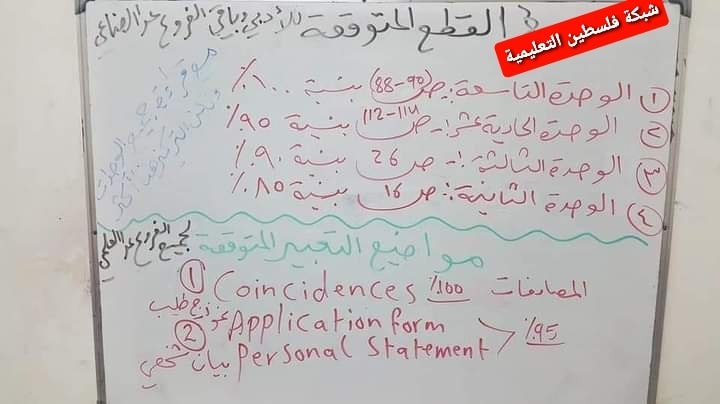 شبكة فلسطين التعليمية
القطع المتوقعة للأدبي وباقي الفروع عدا الصناعي
① الوحدة التاسعة: ص (88-90) بنسبة ١٠٠٪
② الوحدة الحادية عشر:- ص 112-114 بنسبة ٩٥٪
③ الوحدة الثالثة:- ص 26 بنسبة ٩٠٪
④ الوحدة الثانية: ص 16 بنسبة ٨٥٪
مع قراءة جميع الوحدات
مواضيع التعبير المتوقعة لجميع الفروع عدا العلمي
① Coincidences 100٪ المصادفات
② Application form نموذج طلب
Personal Statement بيان شخصي
٪95